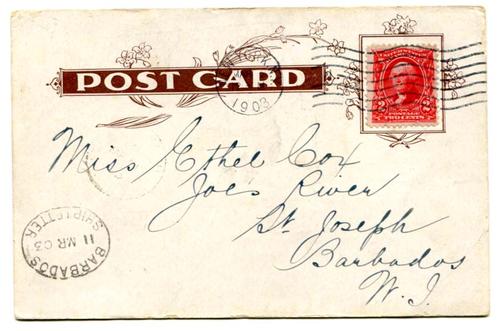 POST CARD
1903
POSTAGE
2 2
TWO CENTS
Miss Ethel Cox
Joe's River
St. Joseph
Barbados
W. I.
BARBADOS
11 MR 03
SHIP LETTER